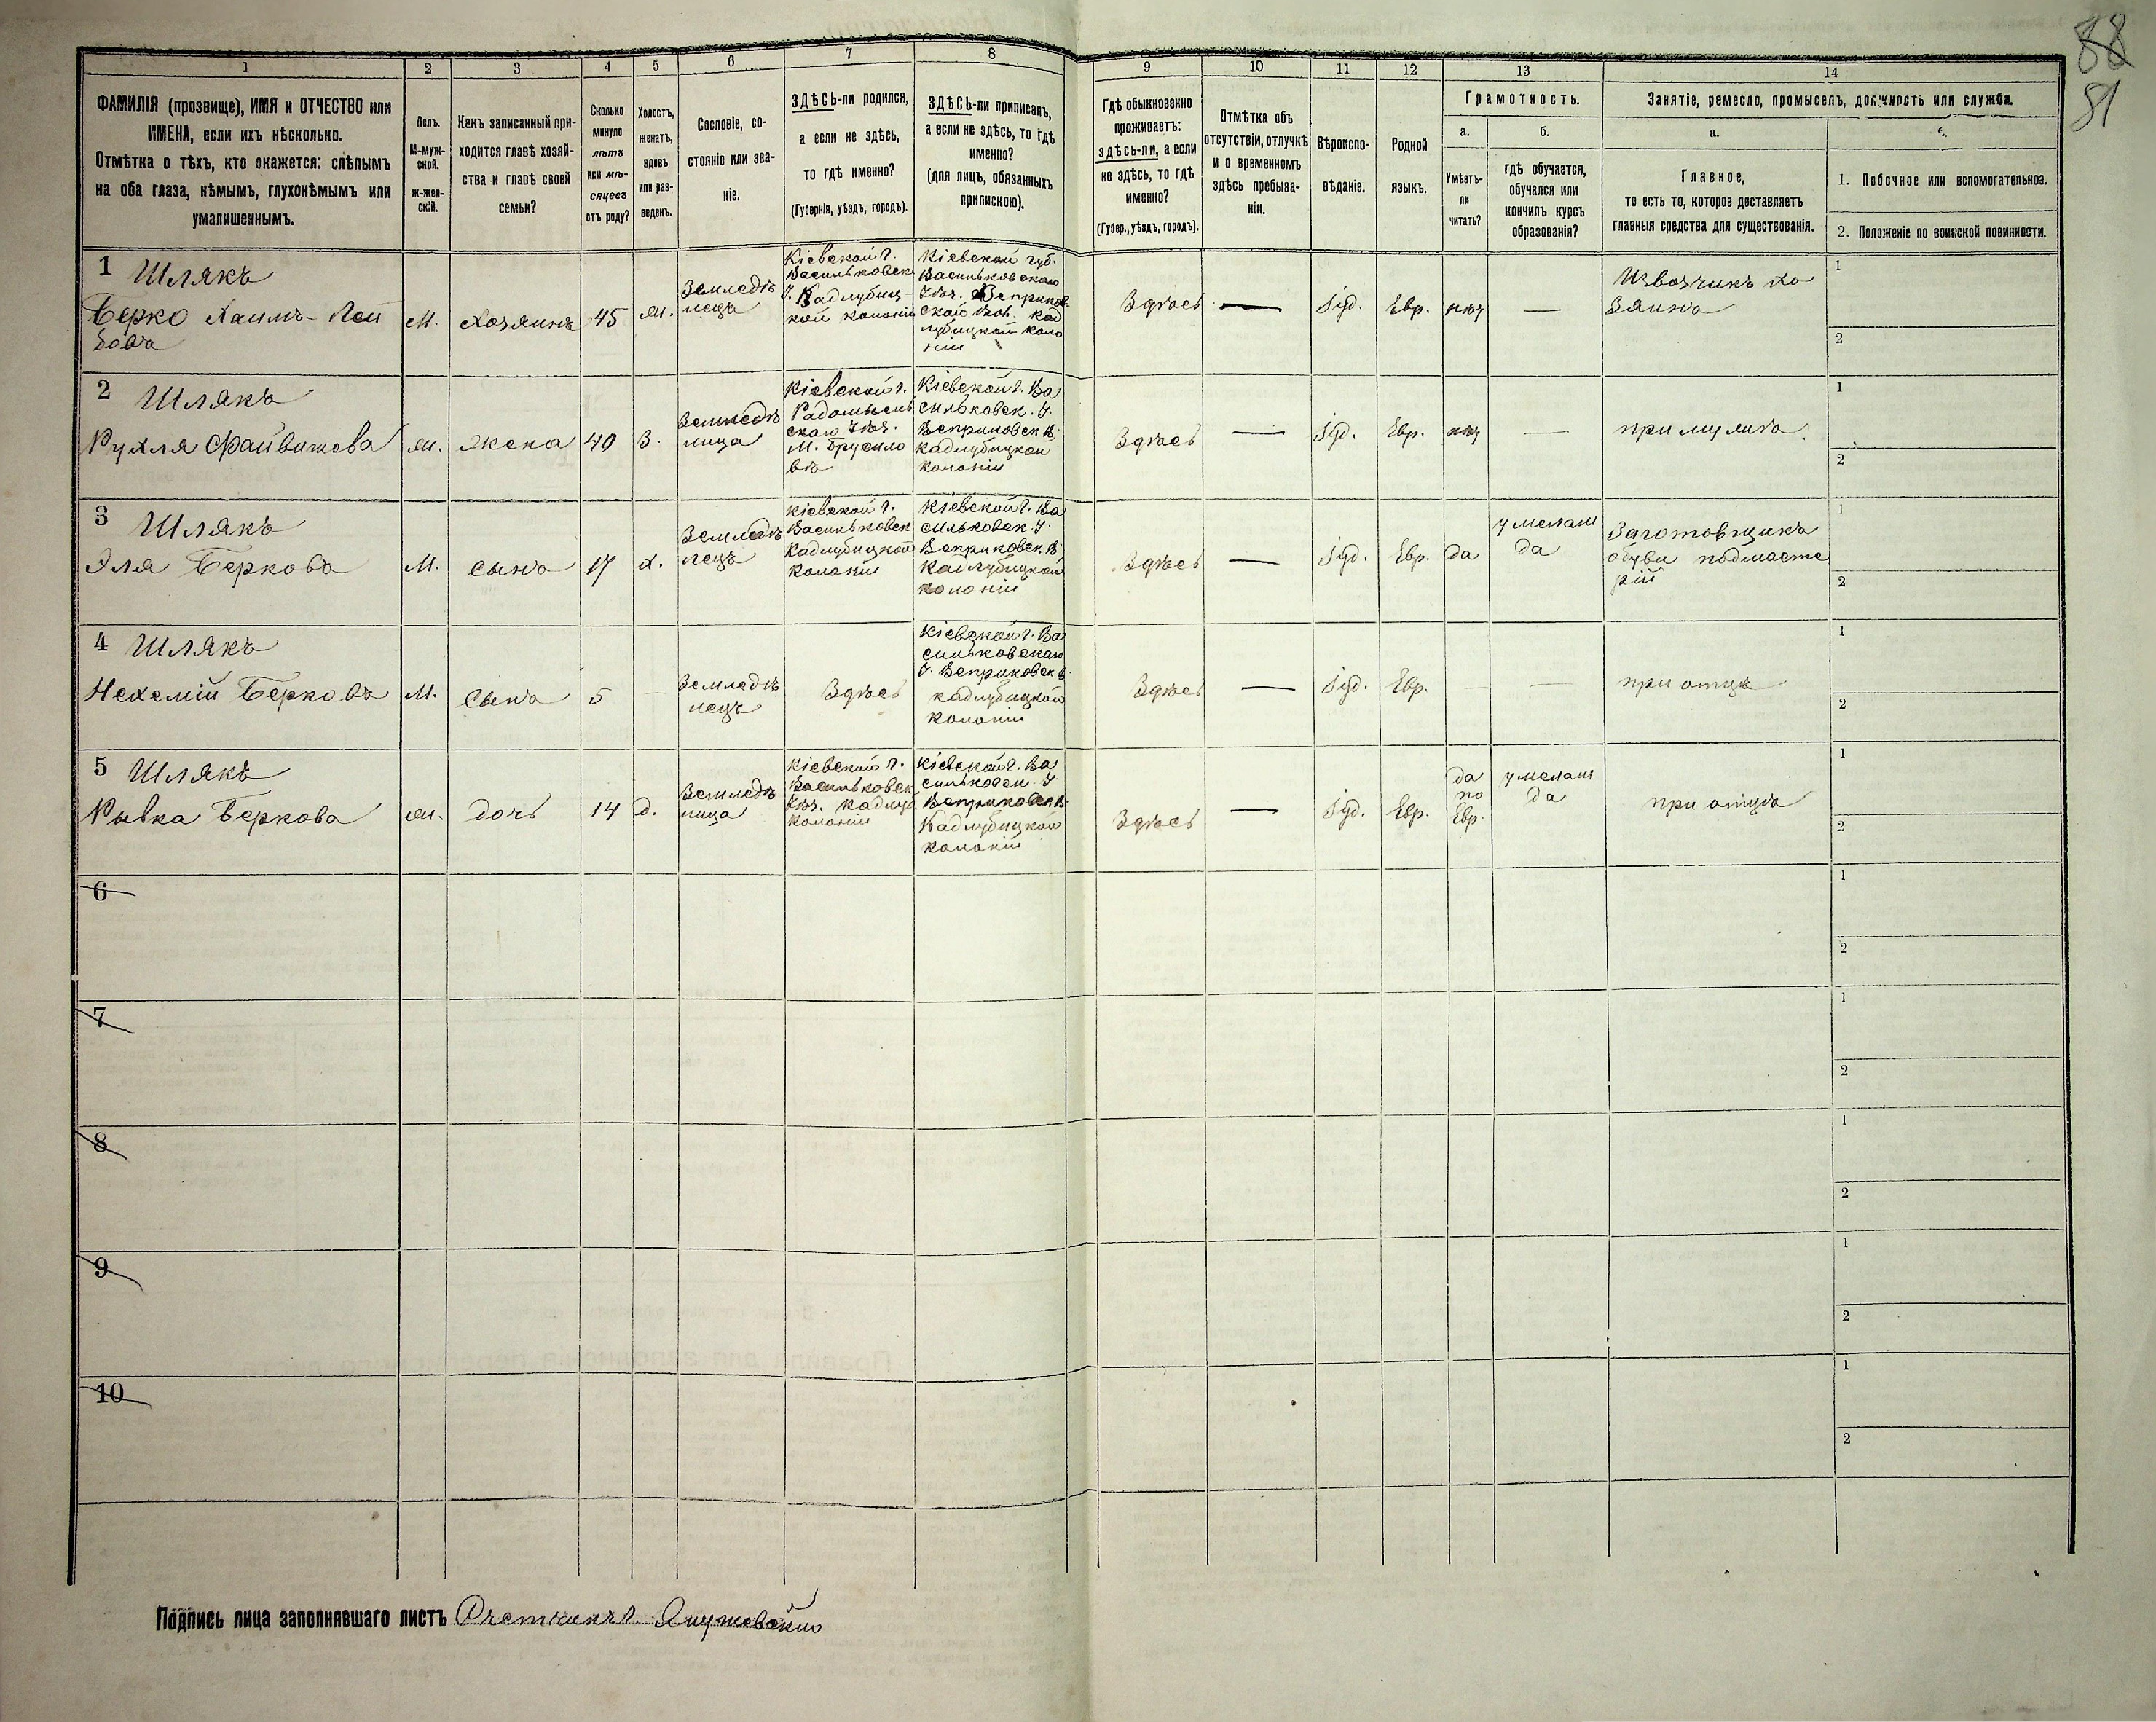 88
81
1
2
3
4
5
6
7
8
9
10
11
12
13
14
ФАМИЛІЯ (прозвище), ИМЯ и ОТЧЕСТВО или
ИМЕНА, если ихъ нѣсколько.
Отмѣтка о тѣхъ, кто окажется: слѣпымъ
на оба глаза, нѣмымъ, глухонѣмымъ или
умалишеннымъ.
Полъ.
М-муж-
ской.
ж-жен-
скій.
Какъ записанный при-
ходится главѣ хозяй-
ства и главѣ своей
семьи?
Сколько
минуло
лѣтъ
или мѣ-
сяцевъ
отъ роду?
Холостъ,
женатъ,
вдовъ
или раз-
веденъ.
Сословіе, со-
стояніе или зва-
ніе.
ЗДѢСЬ-ли родился,
а если не здѣсь,
то гдѣ именно?
(Губернія, уѣздъ, городъ).
ЗДѢСЬ-ли приписанъ,
а если не здѣсь, то гдѣ
именно?
(для лицъ, обязанныхъ
припискою).
Гдѣ обыкновенно
проживаетъ:
здѣсь-ли, а если
не здѣсь, то гдѣ
именно?
(Губер., уѣздъ, городъ).
Отмѣтка объ
отсутствіи, отлучкѣ
и о временномъ
здѣсь пребыва-
ніи.
Вѣроиспо-
вѣданіе.
Родной
языкъ.
Грамотность.
а.
Умѣетъ-
ли
читать?
б.
гдѣ обучается,
обучался или
кончилъ курсъ
образованія?
Занятіе, ремесло, промыселъ, должность или служба.
а.
Главное,
то есть то, которое доставляетъ
главныя средства для существованія.
1. Побочное или вспомогательное.
2. Положеніе по воинской повинности.
1
Шлякъ
Берко Хаимъ-Лей
бовъ
М.
Хозяинъ
45
ж.
Земледѣ
лецъ
Кіевской г.
Васильковск.
У. Кадлубиц-
кой колоніи
Кіевской губ.
Васильковскаго
Уѣз. Веприков
ской Вол. Кад
лубицкой коло
ніи
Здѣсь
—
Іуд.
Евр.
нѣт
—
Извозчикъ хо
зяинъ
1
2
2
Шлякъ
Рухля Файвишова
ж.
жена
40
З.
Земледѣ
лица
Кіевской г.
Радомысль
скаго Уѣз.
М. Брусило
въ
Кіевской г. Ва
сильковск. У.
Веприковск В.
Кадлубицкой
колоніи
Здѣсь
—
Іуд.
Евр.
нѣт
—
при мужѣ
1
2
3
Шлякъ
Эля Беркова
М.
сынъ
17
х.
Земледѣ
лецъ
Кіевской г.
Васильковск.
Кадлубицкой
колоніи
Кіевской г. Ва
сильковск. У.
Веприковск В.
Кадлубицкой
колоніи
Здѣсь
—
Іуд.
Евр.
да
у мелам
да
Заготовщикъ
обуви подмасте
рій
1
2
4
Шлякъ
Нехемій Берковъ
М.
сынъ
5
—
Земледѣ
лецъ
Здѣсь
Кіевской г. Ва
сильковскаго
У. Веприковск В.
Кадлубицкой
колоніи
Здѣсь
—
Іуд.
Евр.
—
—
при отцѣ
1
2
5
Шлякъ
Рывка Беркова
ж.
дочь
14
д.
Земледѣ
лица
Кіевской г.
Васильковск
Уѣз. Кадлуб.
колоніи
Кіевской г. Ва
сильковск. У.
Веприковск В.
Кадлубицкой
колоніи
Здѣсь
—
Іуд.
Евр.
да
по
Евр.
у мелам
да
при отцѣ
1
2
6
1
2
7
1
2
8
1
2
9
1
2
10
1
2
Подпись лица заполнявшаго листъ